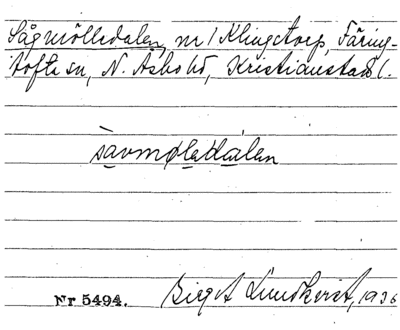 Sågmölledalen, nr 1 Klingstorp, Färing-
tofta sn, N. Åsbo hd, Kristianstads l.
såvmøledálen
Nr 5494. Birgit Lundkvist, 1936